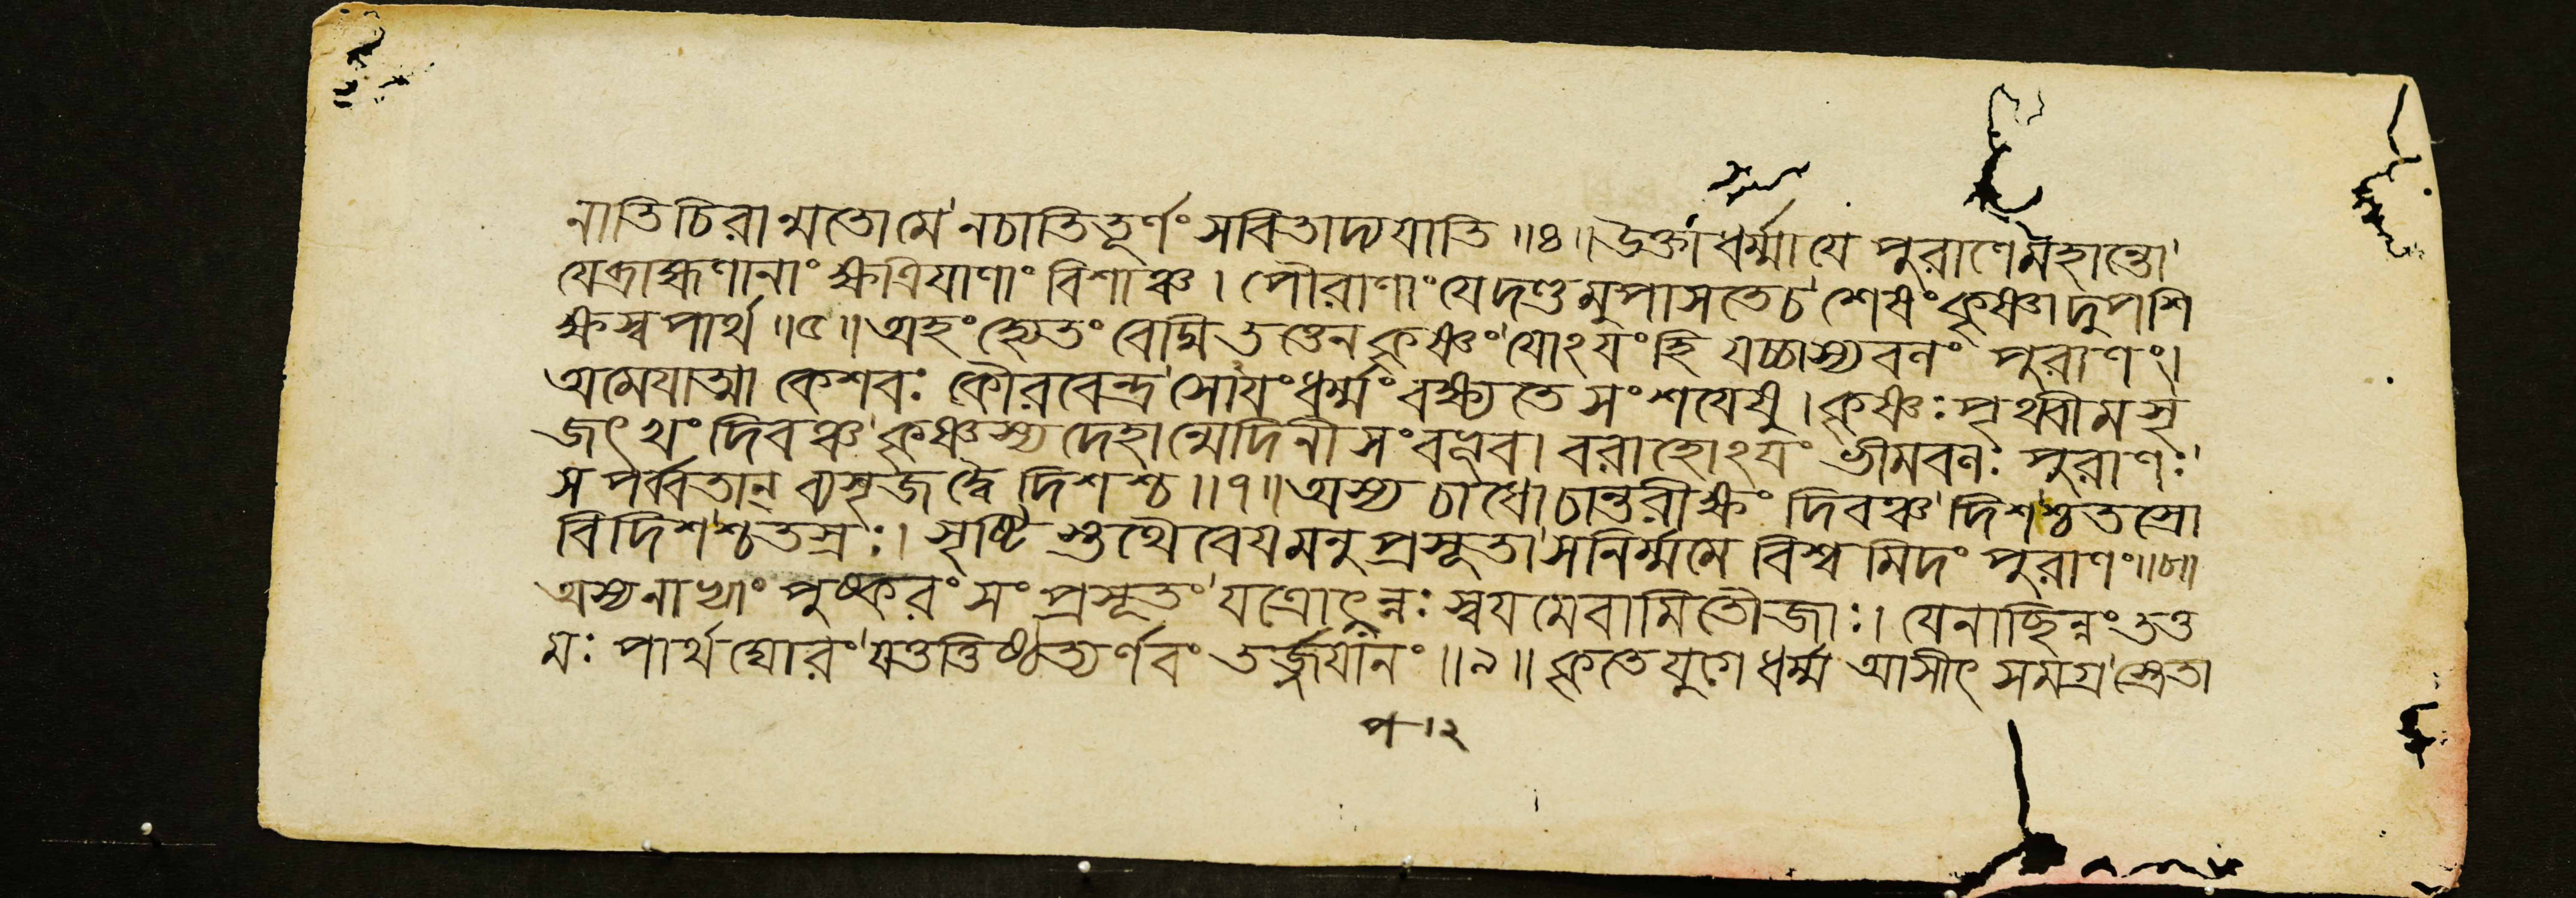 নাতিচিরান্মতোমে নচাতিতূর্ণং সবিতাদ্যযাতি ॥৪॥ উক্তাধর্ম্মা যে পুরাণেমহান্তো
যেব্রাহ্মণানাং ক্ষত্রিযাণাং বিশাঞ্চ । পৌরাণাং যেদণ্ডমুপাসতেচ শেষং কৃষ্ণাদুপশি
ক্ষস্ব পার্থ ॥৫॥ অহং হ্যেতং বেদ্মি তত্ত্বেন কৃষ্ণং যোঽযং হি যচ্চাস্য বলং পুরাণং।
অমেযাত্মা কেশবঃ কৌরবেন্দ্র সোযং ধর্ম্মং বক্ষ্যতে সংশযেষু । কৃষ্ণঃ পৃথ্বীমসৃ
জৎ খং দিবঞ্চ কৃষ্ণস্য দেহান্মেদিনী সংবভূব। বরাহোঽযং ভীমবলঃ পুরাণঃ
স পর্ব্বতান্ ব্যসৃজদ্বৈ দিশশ্চ ॥৭॥ অস্য চাধো চান্তরীক্ষং দিবঞ্চ দিশশ্চতস্রো
বিদিশশ্চতস্রঃ। সৃষ্টি স্তথৈবেযমনুপ্রসূতা সনির্ম্মমে বিশ্বমিদং পুরাণং॥৮॥
অস্যনাভ্যাং পুষ্করং সংপ্রসূতং যত্রোৎপন্নঃ স্বযমেবামিতৌজাঃ। যেনাচ্ছিন্নং তত্ত
মঃ পার্থঘোরং যত্তত্তিষ্ঠত্যর্ণবং তর্জ্জযানং ॥৯॥ কৃতেযুগে ধর্ম্ম আসীৎ সমগ্র স্ত্রেতা
প ।২